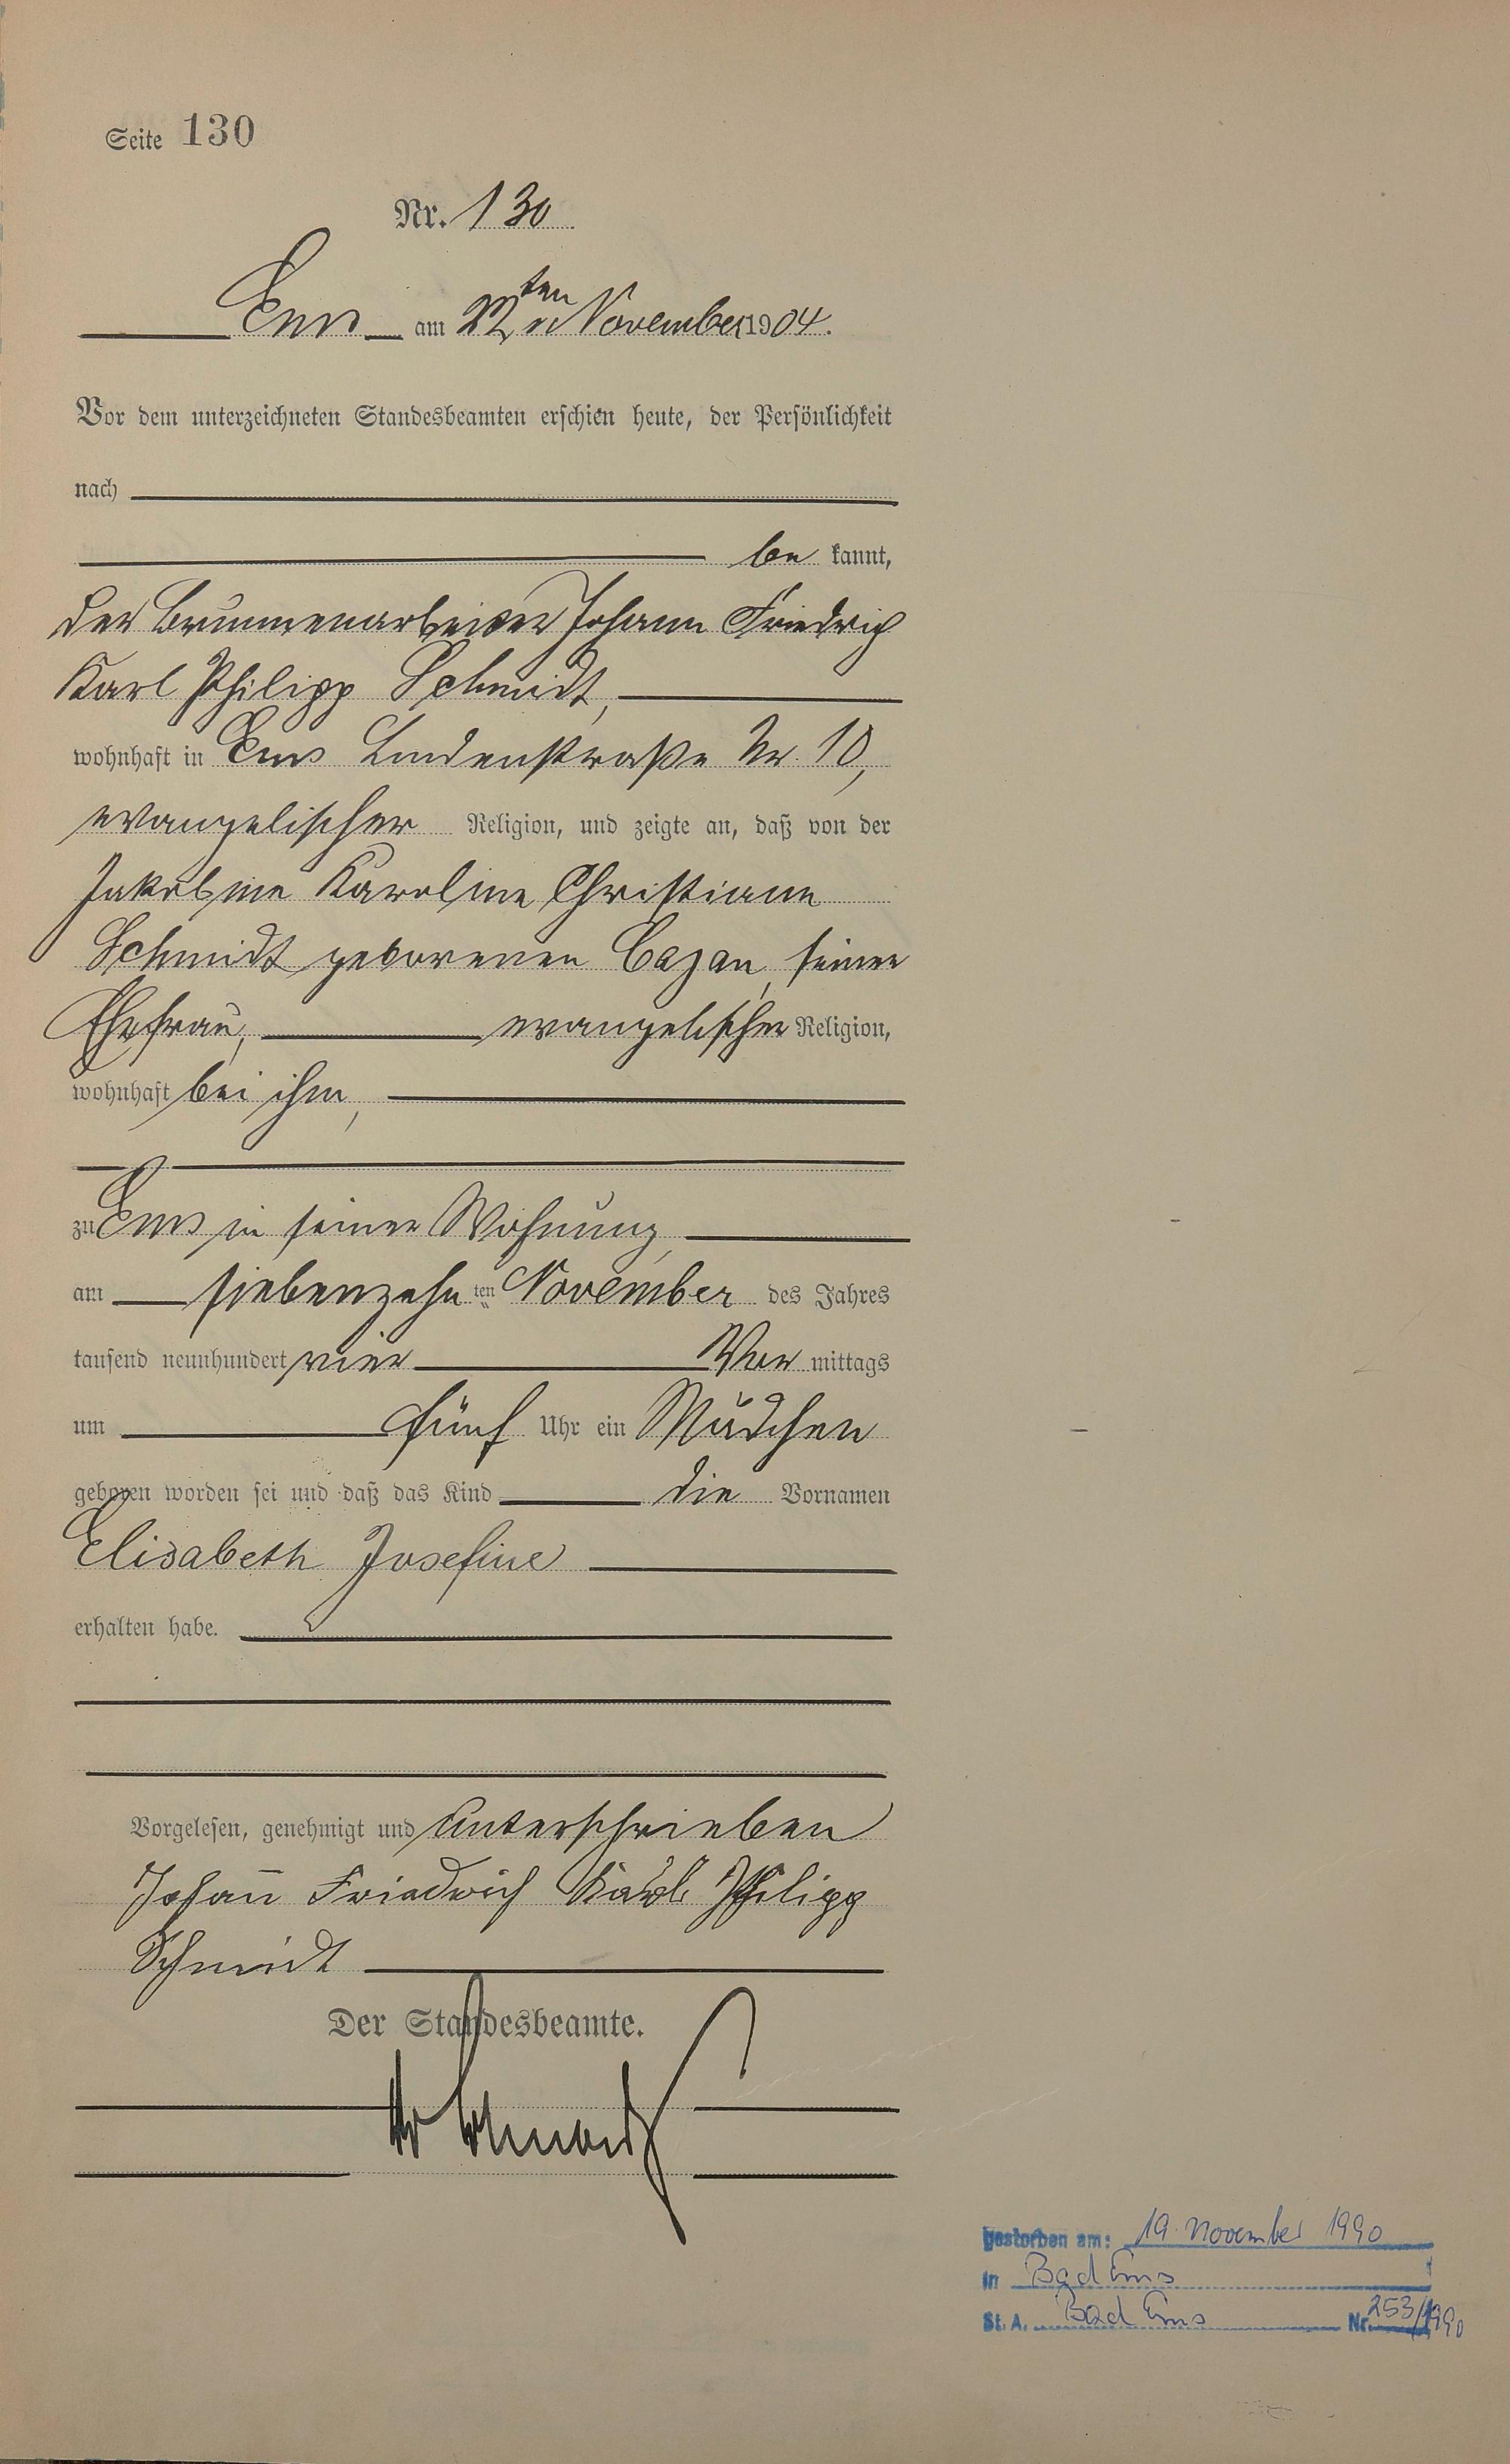 Seite 130
Nr. 130
Ems am 22ten November 1904.
Vor dem unterzeichneten Standesbeamten erschien heute, der Persönlichkeit
nach
be kannt,
der Brunnenarbeiter Johann Friedrich
Karl Philipp Schmidt,
wohnhaft in Ems Lindenstraße Nr. 10,
evangelischer Religion, und zeigte an, daß von der
Jakobine Karoline Christiane
Schmidt geborenen Cazan, seiner
Ehefrau, evangelischer Religion,
wohnhaft bei ihm,
zu Ems in seiner Wohnung,
am siebenzehn ten November des Jahres
tausend neunhundert vier Vor mittags
um fünf Uhr ein Mädchen
geboren worden sei und daß das Kind die Vornamen
Elisabeth Josefine
erhalten habe.
Vorgelesen, genehmigt und unterschrieben
Johann Friedrich Karl Philipp
Schmidt
Der Standesbeamte.
gestorben am: 19. November 1990
in Bad Ems
St. A. Bad Ems Nr. 253/1990